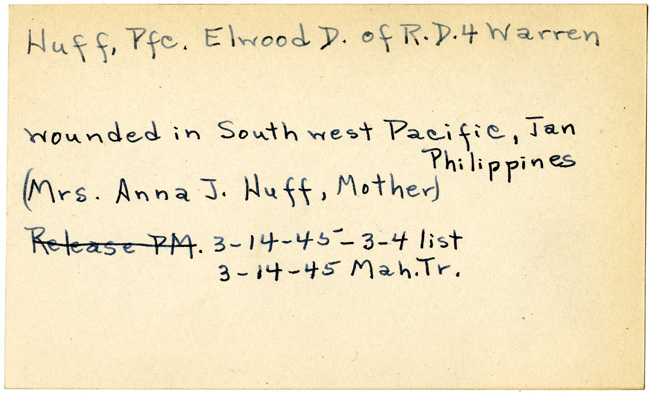 Huff, Pfc. Elwood D. of R.D.4 Warren
wounded in Southwest Pacific, Jan
Philippines
(Mrs. Anna J. Huff, Mother)
Release PM. 3-14-45-3-4 list
3-14-45 Mah.Tr.